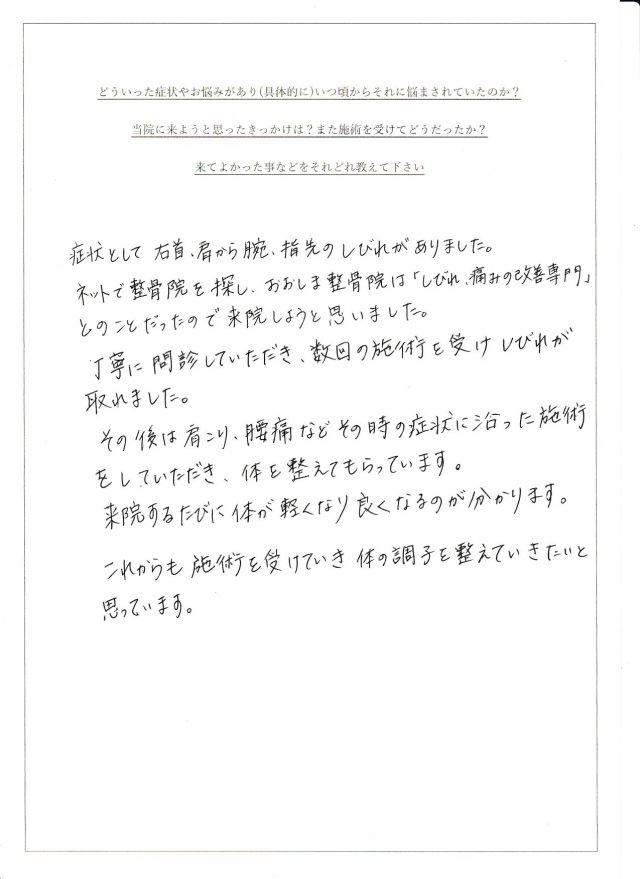 どういった症状やお悩みがあり(具体的に)いつ頃からそれに悩まされていたのか？
当院に来ようと思ったきっかけは？また施術を受けてどうだったか？
来てよかった事などをそれどれ教えて下さい
症状として 右首、肩から腕、指先のしびれがありました。
ネットで整骨院を探し、おおしま整骨院は「しびれ、痛みの改善専門」
とのことだったので来院しようと思いました。
丁寧に問診していただき、数回の施術を受けしびれが
取れました。
その後は肩こり、腰痛などその時の症状に沿った施術
をしていただき、体を整えてもらっています。
来院するたびに体が軽くなり良くなるのが分かります。
これからも施術を受けていき体の調子を整えていきたいと
思っています。